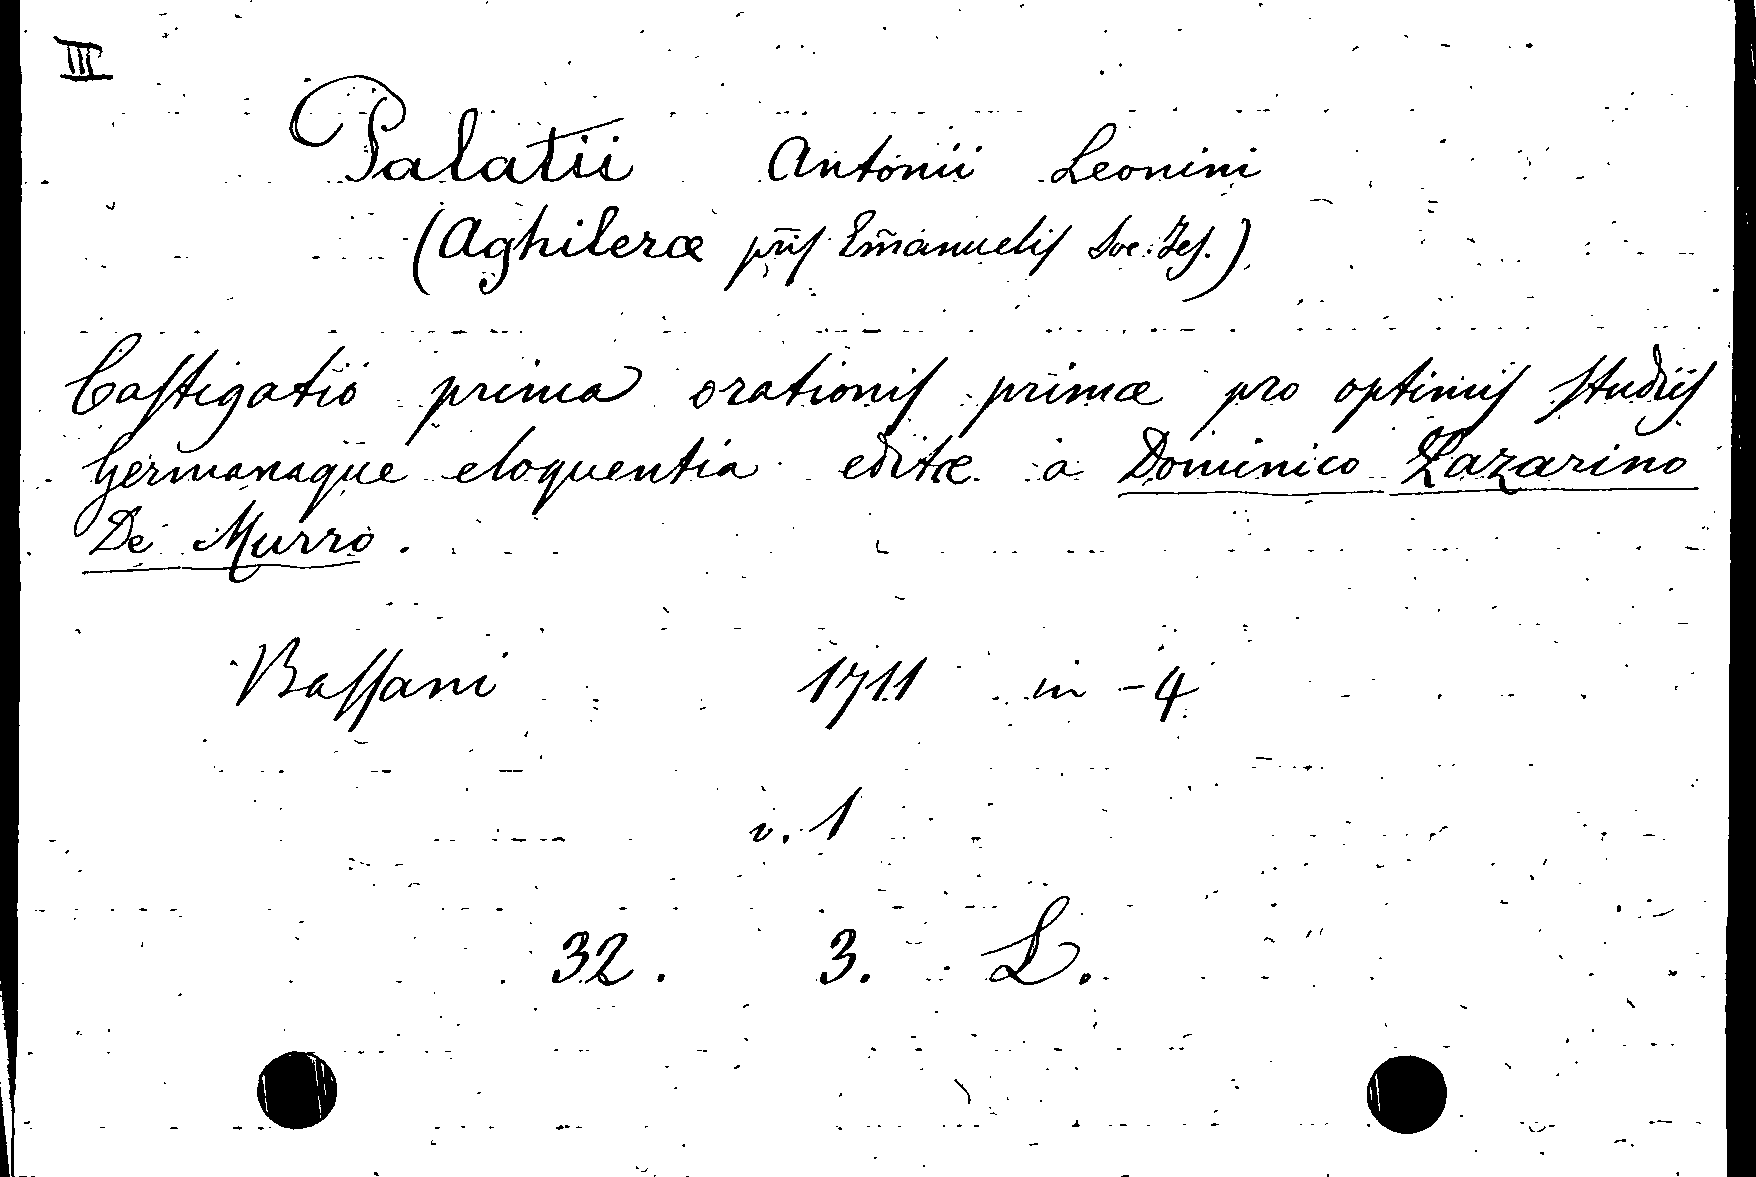 III
Palatii Antonii Leonini
(Aghileræ pr̃is Em̃anuelis Soc. Jes.)
Castigatio prima orationis primæ pro optimis studiis
germanaque eloquentia editæ a Dominico Lazarino
De Murro.
Bassani 1711 in-4
v. 1
32. 3. L.